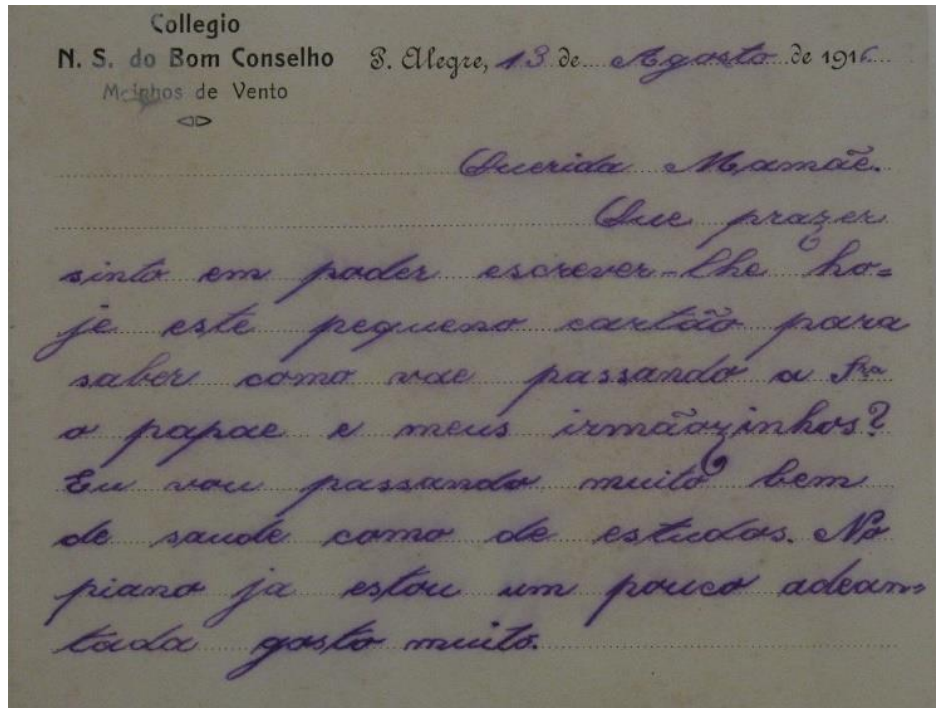 Collegio
N. S. do Bom Conselho
Moinhos de Vento
P. Alegre, 13 de Agosto de 1916
Querida Mamãe.
Que prazer
sinto em poder escrever-lhe ho=
je este pequeno cartão para
saber como vae passando a Sra
o papae e meus irmãozinhos?
Eu vou passando muito bem
de saude como de estudos. No
piano ja estou um pouco adean=
tada gosto muito.